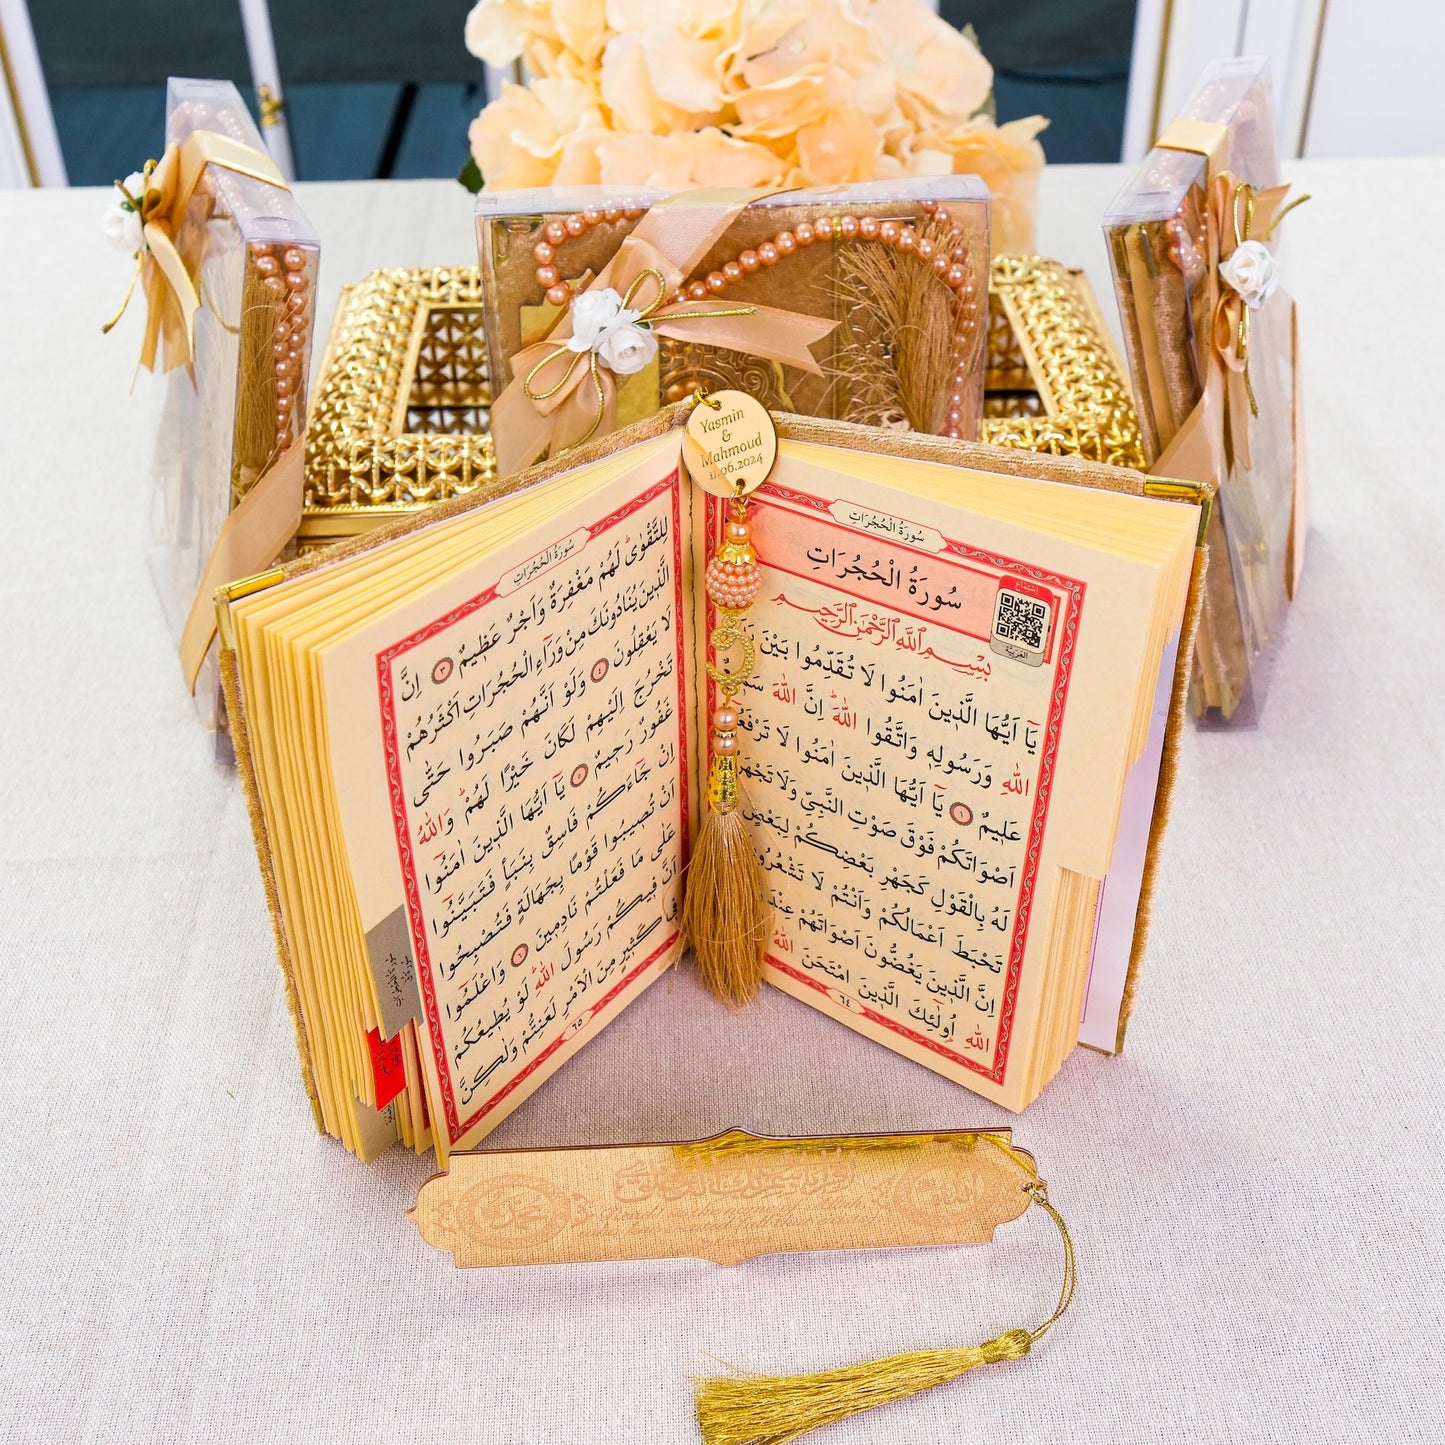 Yasmin
&
Mahmoud
11.06.2024
سُورَةُ الْحُجُرَاتِ
سُورَةُ الْحُجُرَاتِ
اِسْتِمَاع
العَرَبِيَّة
بِسْمِ اللّٰهِ الرَّحْمٰنِ الرَّحِيمِ
يَٓا اَيُّهَا الَّذ۪ينَ اٰمَنُوا لَا تُقَدِّمُوا بَيْنَ
اللّٰهِ وَرَسُولِه۪ وَاتَّقُوا اللّٰهَۜ اِنَّ اللّٰهَ
عَل۪يمٌ ١ يَٓا اَيُّهَا الَّذ۪ينَ اٰمَنُوا لَا
اَصْوَاتَكُمْ فَوْقَ صَوْتِ النَّبِيِّ وَلَا
لَهُ بِالْقَوْلِ كَجَهْرِ بَعْضِكُمْ لِبَعْضٍ
تَحْبَطَ اَعْمَالُكُمْ وَاَنْتُمْ لَا تَشْعُرُ
اِنَّ الَّذ۪ينَ يَغُضُّونَ اَصْوَاتَهُمْ عِنْدَ
اللّٰهِ اُولٰٓئِكَ الَّذ۪ينَ امْتَحَنَ اللّٰهُ
٦٤
سُورَةُ الْحُجُرَاتِ
لِلتَّقْوٰىۜ لَهُمْ مَغْفِرَةٌ وَاَجْرٌ عَظ۪يمٌ ٣ اِنَّ
الَّذ۪ينَ يُنَادُونَكَ مِنْ وَرَٓاءِ الْحُجُرَاتِ اَكْثَرُهُمْ
لَا يَعْقِلُونَ ٤ وَلَوْ اَنَّهُمْ صَبَرُوا حَتّٰى
تَخْرُجَ اِلَيْهِمْ لَكَانَ خَيْرًا لَهُمْۜ وَاللّٰهُ
غَفُورٌ رَح۪يمٌ ٥ يَٓا اَيُّهَا الَّذ۪ينَ اٰمَنُٓوا
اِنْ جَٓاءَكُمْ فَاسِقٌ بِنَبَأٍ فَتَبَيَّنُٓوا
اَنْ تُص۪يبُوا قَوْمًا بِجَهَالَةٍ فَتُصْبِحُوا
عَلٰى مَا فَعَلْتُمْ نَادِم۪ينَ ٦ وَاعْلَمُٓوا
اَنَّ ف۪يكُمْ رَسُولَ اللّٰهِۜ لَوْ يُط۪يعُكُمْ
ف۪ي كَث۪يرٍ مِنَ الْاَمْرِ لَعَنِتُّمْ وَلٰكِنَّ
٦٥